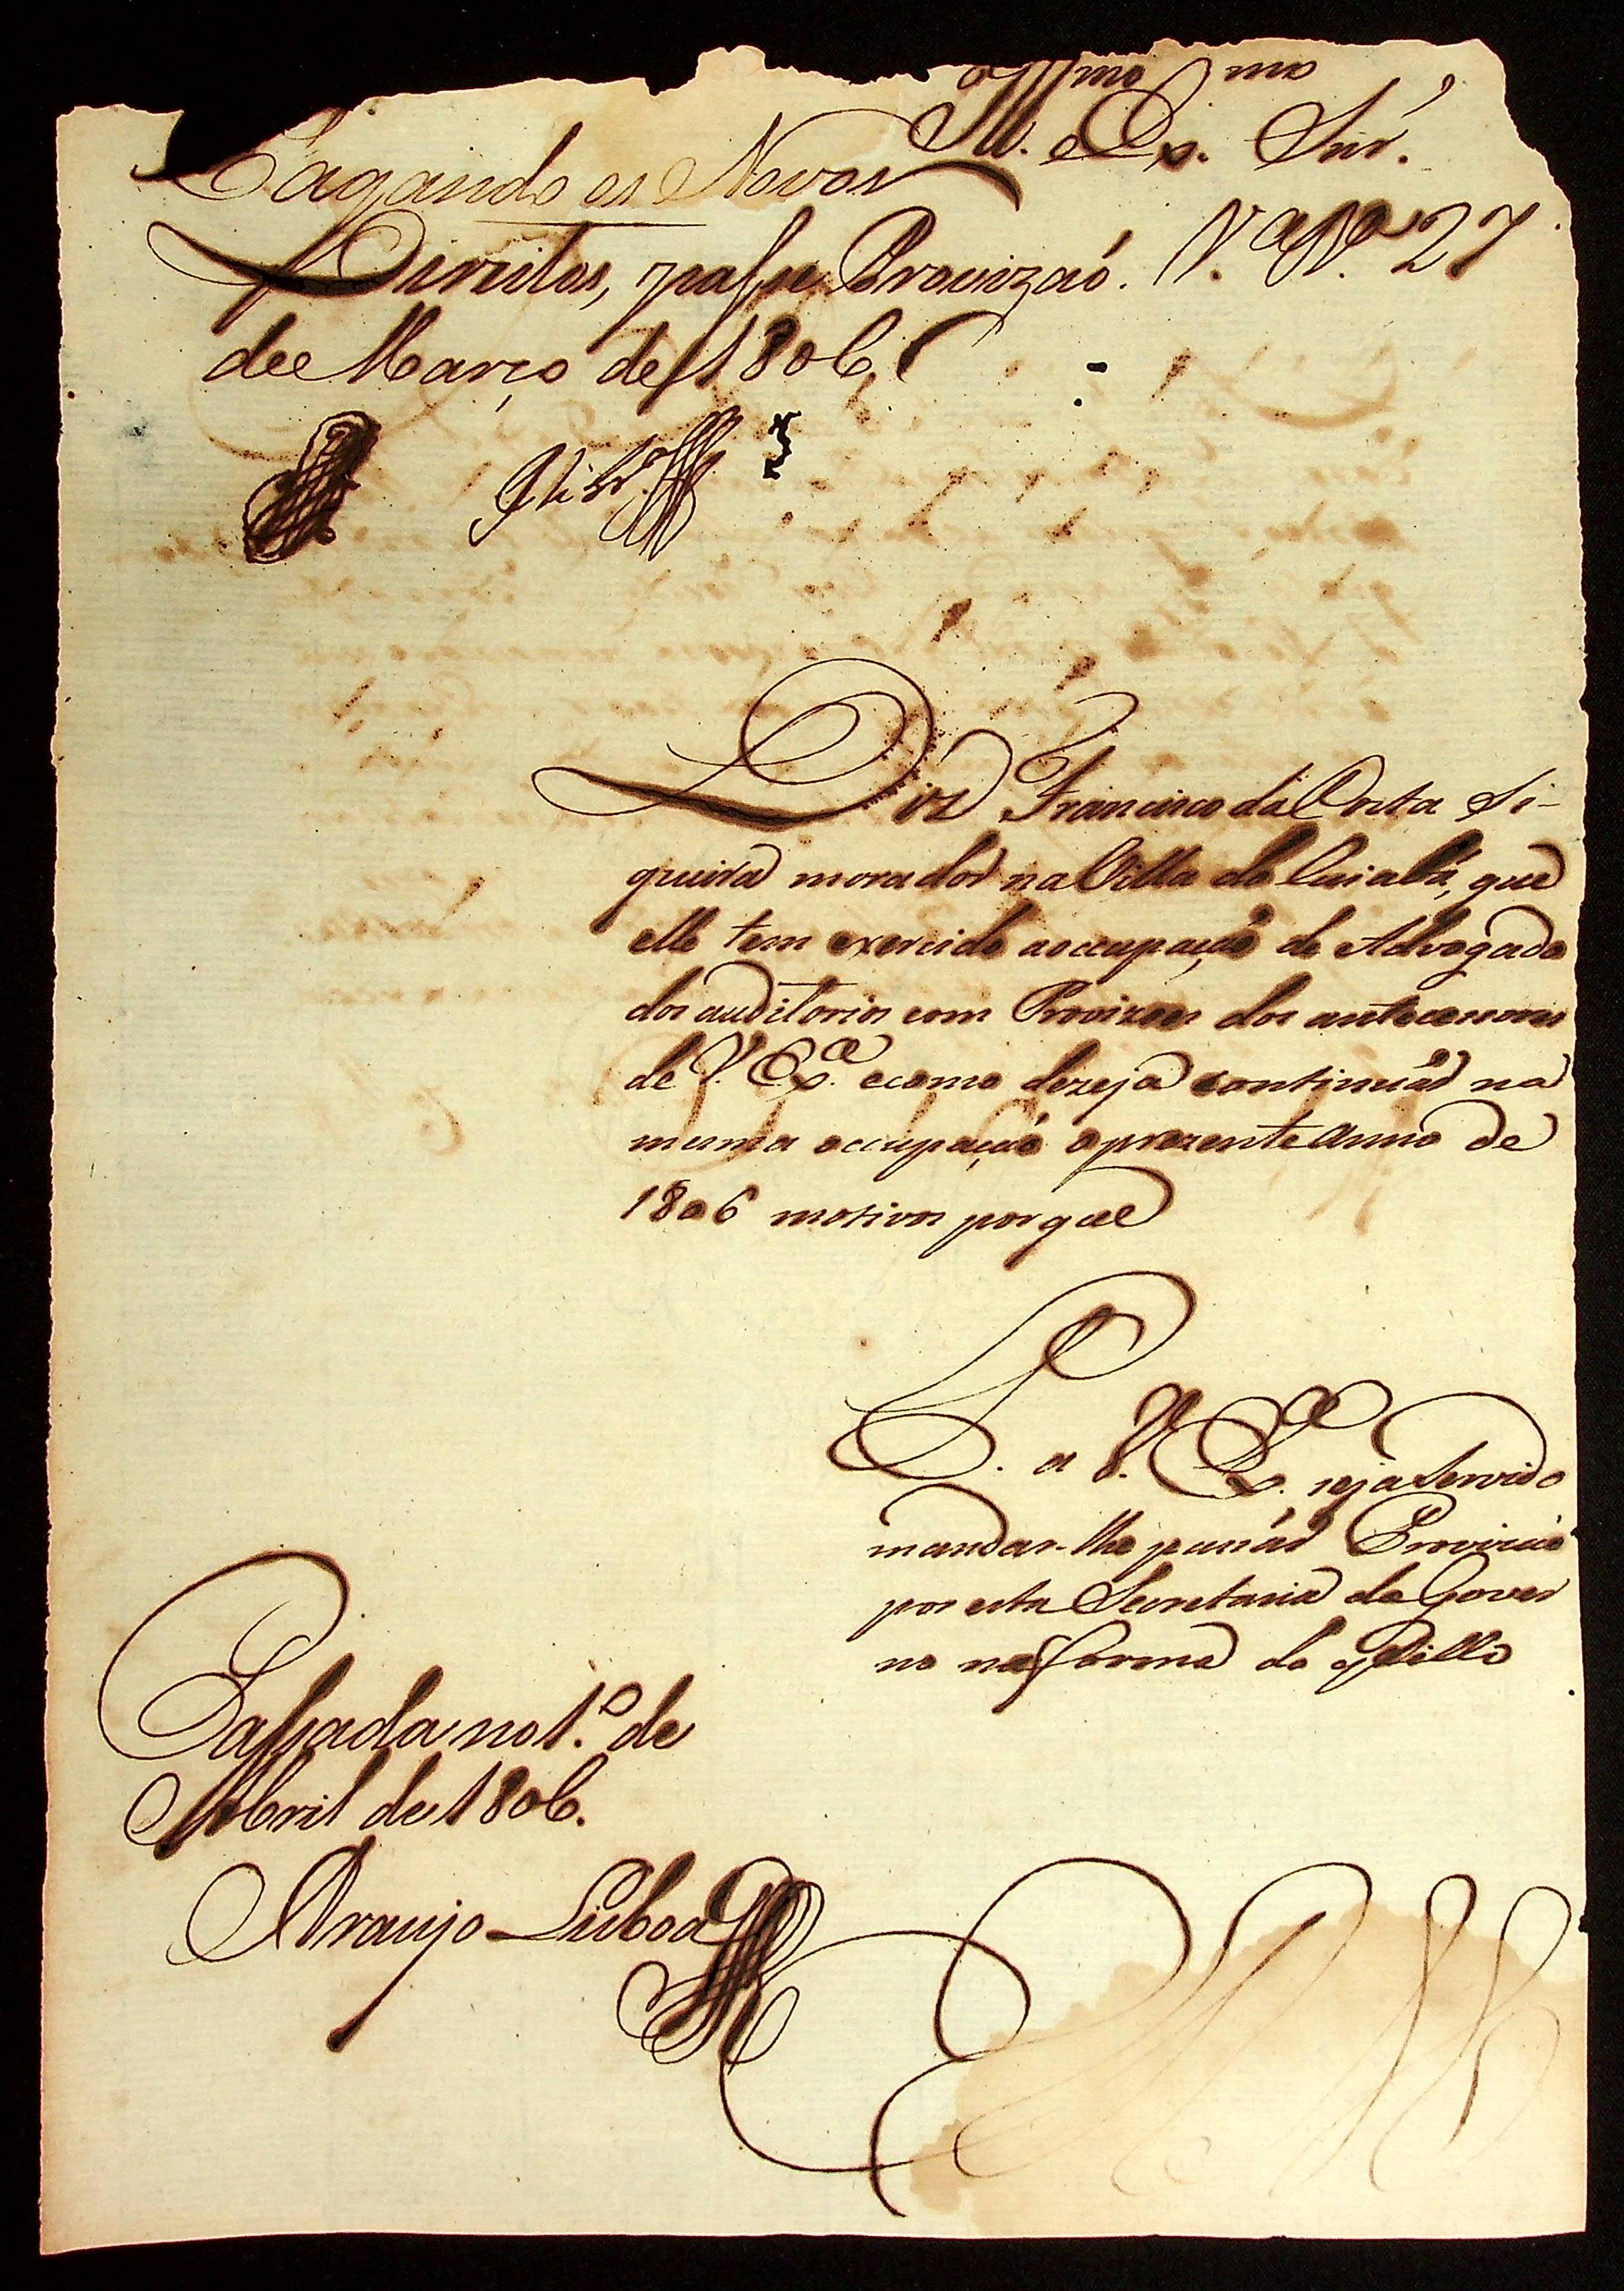 Ill.mo e Ex.mo Snr.
Pagando os Novos
Direitos, passe Provizaó. V.a 27
de Março de 1806.
Diz Francisco da Costa Si-
queira morador na Villa do Cuiabá, que
elle tem exercido aoccupaçaõ de Advogado
dos auditorios com Provizoes dos antecessores
de V. Ex.a ecomo dezeja continuár na
mesma occupaçaõ oprezente anno de
1806 motivos porque
P. a V. Ex.a seja Servido
mandar-lhe passár Provizaõ
por esta Secretaria do Gover
no na forma do estillo
Passada no 1.º de
Abril de 1806.
Araujo Lisboa